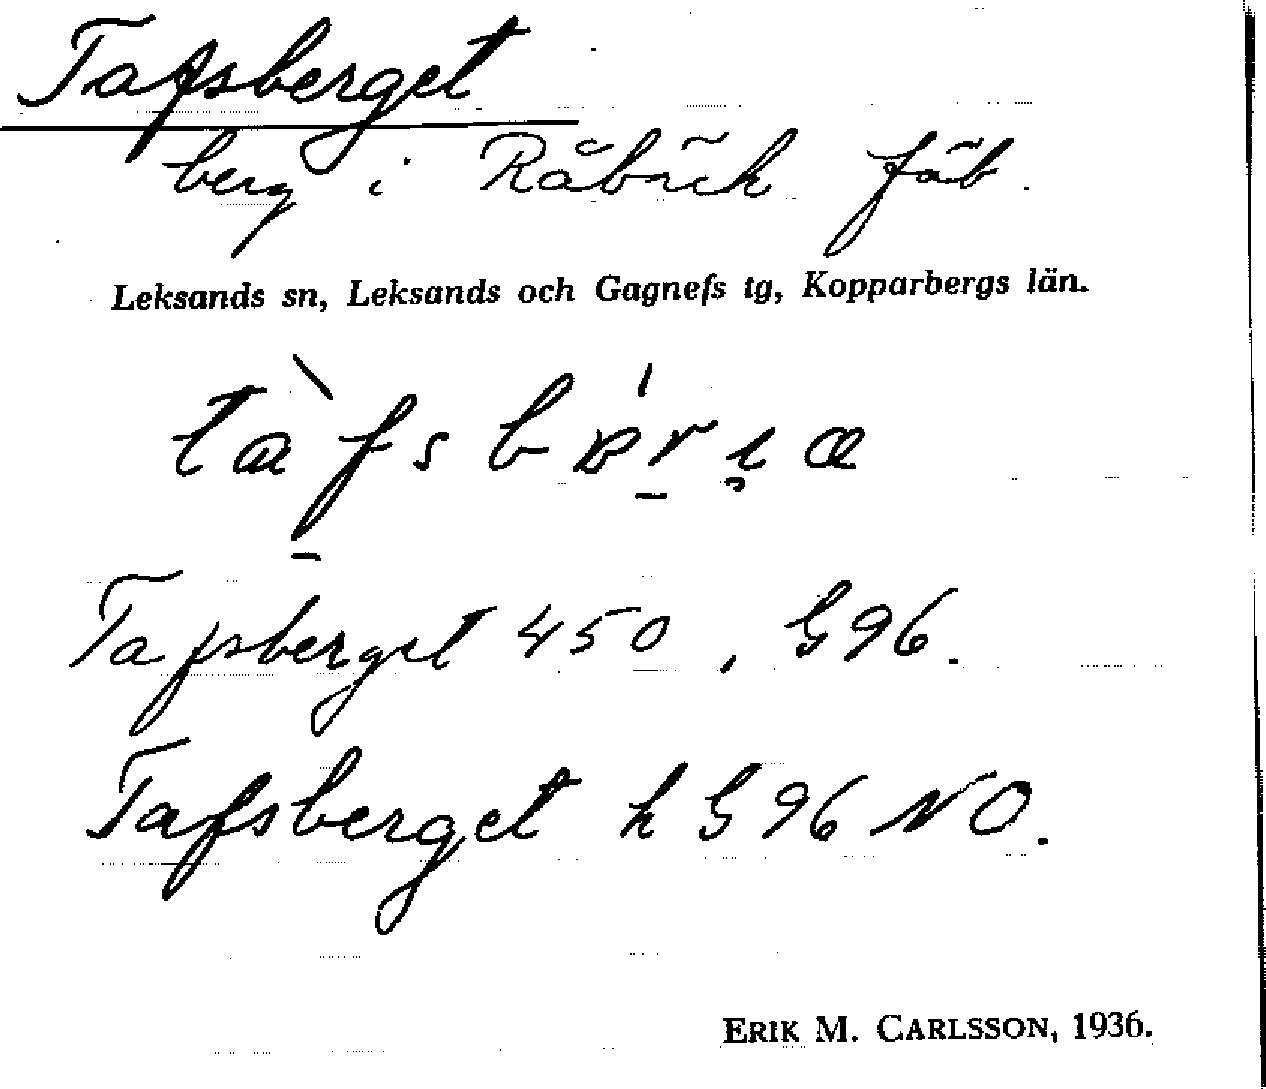 Tafsberget
berg i Råbäck fäb.
Leksands sn, Leksands och Gagnefs tg, Kopparbergs län.
Tafsberget 450, G96.
Tafsberget h G96 NO.
ERIK M. CARLSSON, 1936.